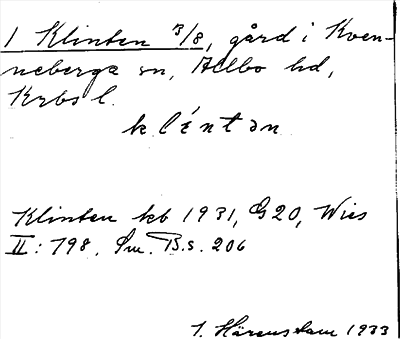 1 Klinten 3/8, gård i Kvenneberga sn, Allbo hd,
Krbs l.
kléntən
Klinten kb 1931, G20, Wies
II: 798, Sm. B.s. 206
I. Härenstam 1933